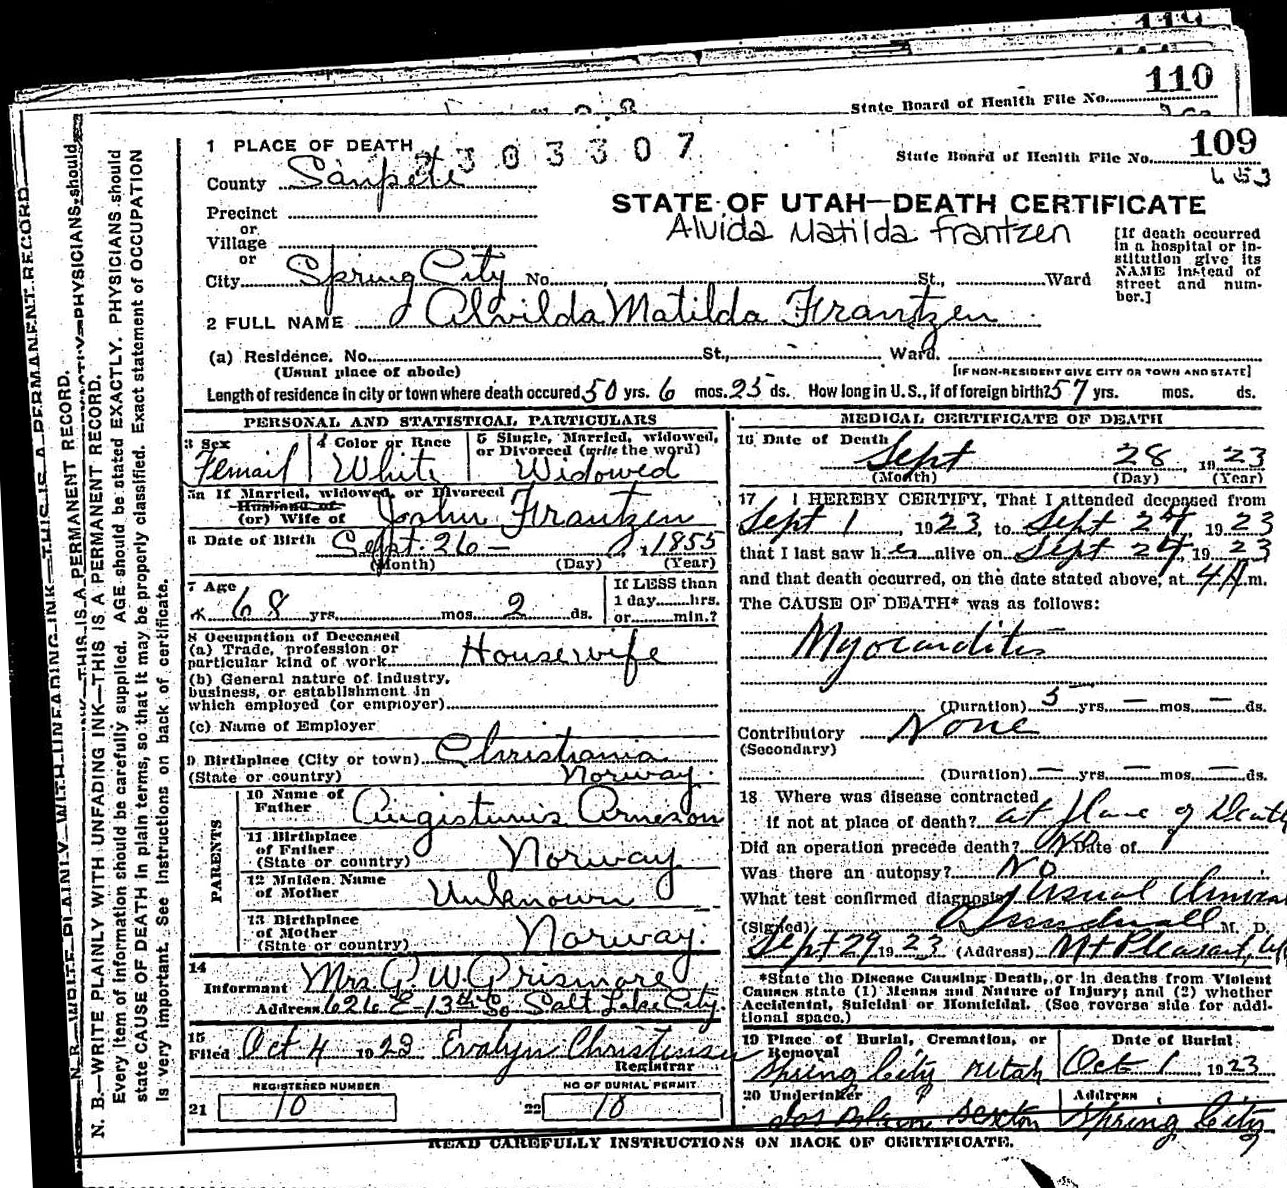 110
State Board of Health File No.
109
State Board of Health File No.
653
1 PLACE OF DEATH
303307
County Sanpete
STATE OF UTAH—DEATH CERTIFICATE
Precinct
Alvida Matilda Frantzen
or
Village
or
City Spring City No. St., Ward
[If death occurred in a hospital or institution give its NAME instead of street and number.]
2 FULL NAME Alvilda Matilda Frantzen
(a) Residence. No. St., Ward.
(Usual place of abode) [IF NON-RESIDENT GIVE CITY OR TOWN AND STATE]
Length of residence in city or town where death occured 50 yrs. 6 mos. 25 ds. How long in U.S., if of foreign birth? 57 yrs. mos. ds.
PERSONAL AND STATISTICAL PARTICULARS
3 Sex
Femail
4 Color or Race
White
5 Single, Married, widowed, or Divorced (write the word)
Widowed
5a If Married, widowed, or Divorced
Husband of
(or) Wife of John Frantzen
6 Date of Birth Sept. 26 - 1855
(Month) (Day) (Year)
7 Age
68 yrs. mos. 2 ds.
If LESS than
1 day hrs.
or min.?
8 Occupation of Deceased
(a) Trade, profession or
particular kind of work Housewife
(b) General nature of industry,
business, or establishment in
which employed (or employer)
(c) Name of Employer
9 Birthplace (City or town) Christiania
(State or country) Norway.
PARENTS
10 Name of
Father Augistinus Arneson
11 Birthplace
of Father
(State or country) Norway
12 Maiden Name
of Mother Unknown
13 Birthplace
of Mother
(State or country) Norway.
14
Informant Mrs G. W. Prismore
Address 626 E-13th So Salt Lake City
15
Filed Oct 4 1923 Evalyn Christensen
Registrar
REGISTERED NUMBER
21 10
NO OF BURIAL PERMIT
22 10
MEDICAL CERTIFICATE OF DEATH
16 Date of Death
Sept 28, 1923
(Month) (Day) (Year)
17 I HEREBY CERTIFY, That I attended deceased from
Sept 1, 1923, to Sept 27 1923
that I last saw her alive on Sept 27, 1923
and that death occurred, on the date stated above, at 4A.m.
The CAUSE OF DEATH* was as follows:
Myocarditis
(Duration) 5 yrs. — mos. — ds.
Contributory None
(Secondary)
(Duration) — yrs. — mos. — ds.
18 Where was disease contracted
if not at place of death? at place of Death
Did an operation precede death? No Date of
Was there an autopsy? No
What test confirmed diagnosis? Usual
(Signed) M. D.
Sept 29 1923 (Address) Mt Pleasant,
*State the Disease Causing Death, or in deaths from Violent
Causes state (1) Means and Nature of Injury; and (2) whether
Accidental, Suicidal or Homicidal. (See reverse side for addi-
tional space.)
19 Place of Burial, Cremation, or
Removal
Spring City Utah
Date of Burial
Oct 1 1923
20 Undertaker
Sexton
Address
Spring City
READ CAREFULLY INSTRUCTIONS ON BACK OF CERTIFICATE.
N. B.—WRITE PLAINLY WITH UNFADING INK—THIS IS A PERMANENT RECORD.
Every item of information should be carefully supplied. AGE should be stated EXACTLY. PHYSICIANS should
state CAUSE OF DEATH in plain terms, so that it may be properly classified. Exact statement of OCCUPATION
is very important. See instructions on back of certificate.